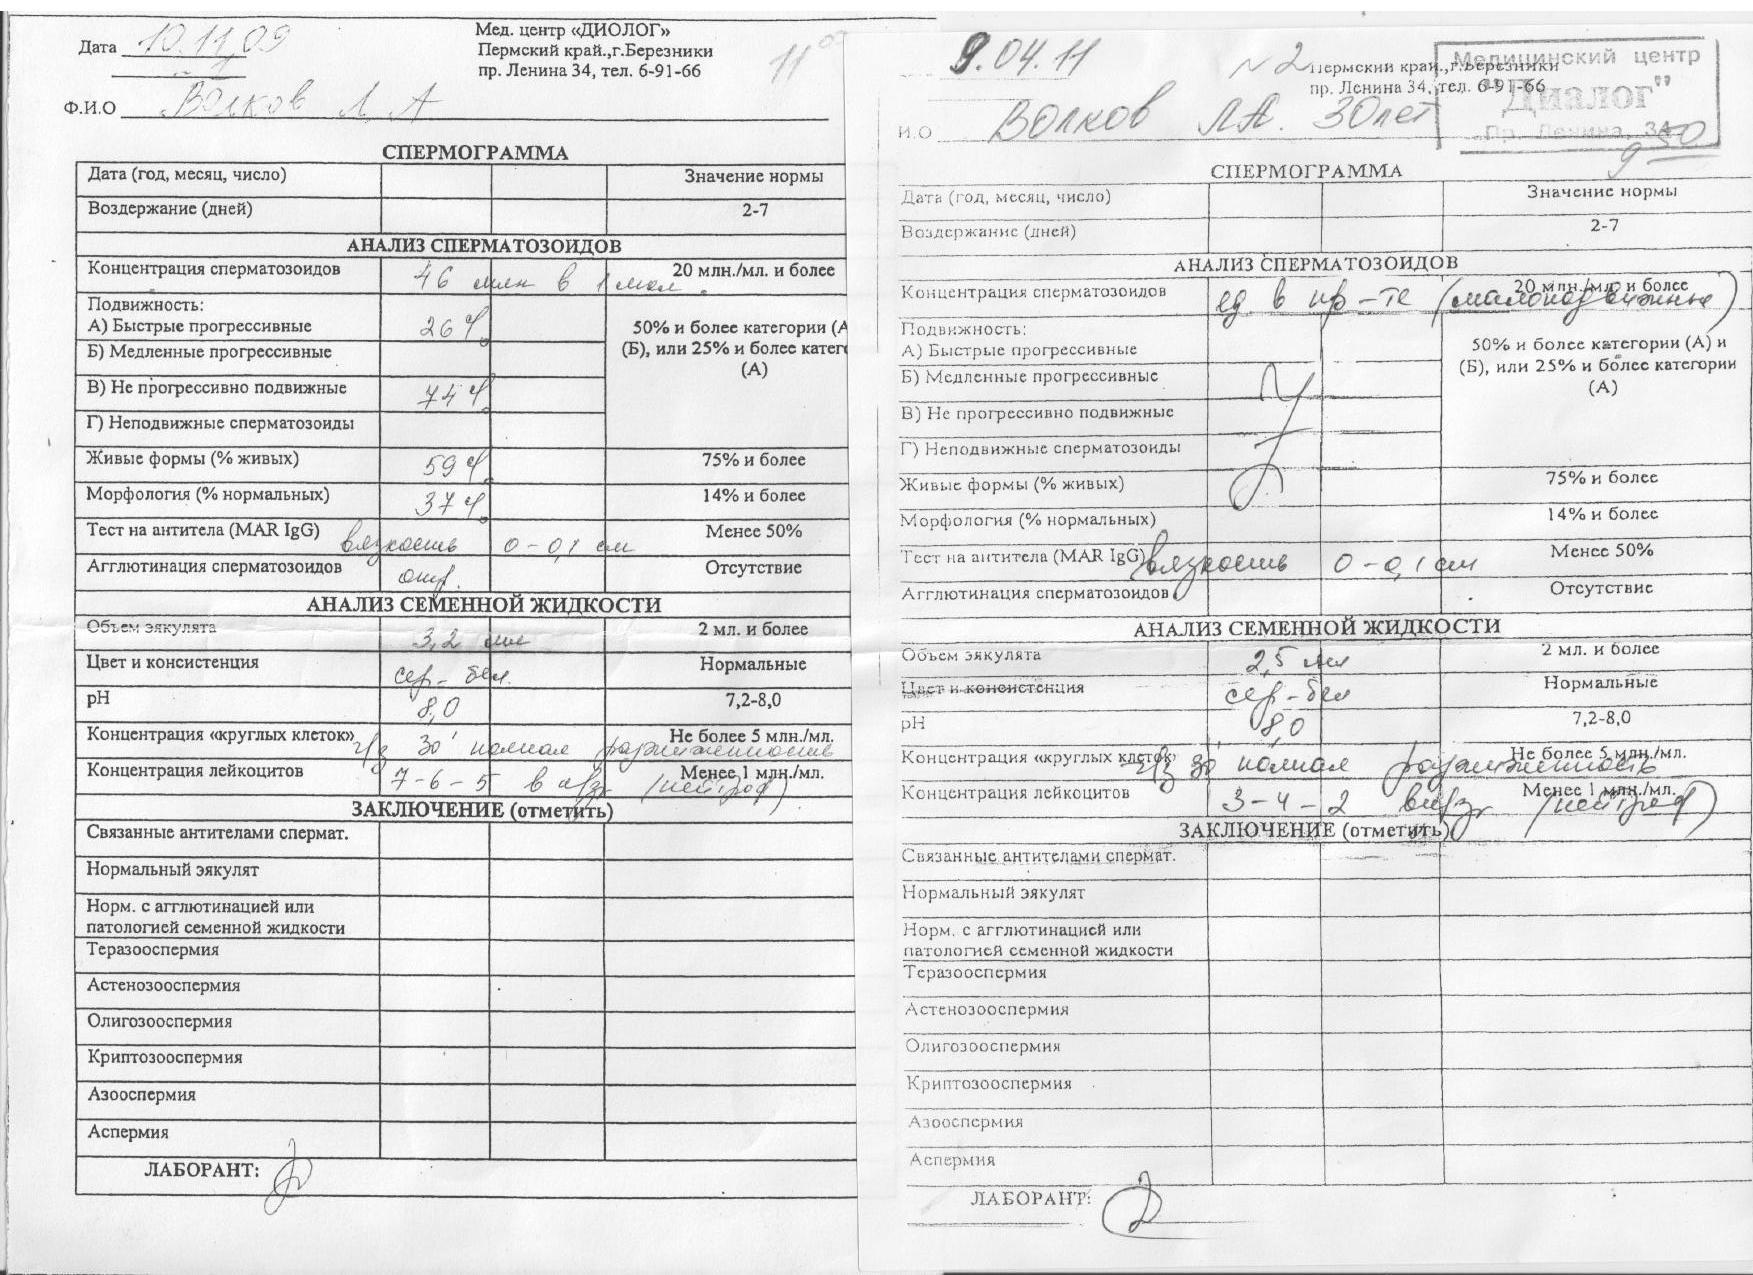 Дата 10.11.09
Мед. центр «ДИОЛОГ»
Пермский край.,г.Березники
пр. Ленина 34, тел. 6-91-66
11 00
Ф.И.О Волков Л А
СПЕРМОГРАММА
Дата (год, месяц, число) Значение нормы
Воздержание (дней) 2-7
АНАЛИЗ СПЕРМАТОЗОИДОВ
Концентрация сперматозоидов 46 млн в 1 мл 20 млн./мл. и более
Подвижность:
А) Быстрые прогрессивные 26% 50% и более категории (А
Б) Медленные прогрессивные (Б), или 25% и более катег
(А)
В) Не прогрессивно подвижные 74%
Г) Неподвижные сперматозоиды
Живые формы (% живых) 59% 75% и более
Морфология (% нормальных) 37% 14% и более
Тест на антитела (MAR IgG) вязкость 0-0,1 см Менее 50%
Агглютинация сперматозоидов отр. Отсутствие
АНАЛИЗ СЕМЕННОЙ ЖИДКОСТИ
Объем эякулята 3,2 мл 2 мл. и более
Цвет и консистенция сер-бел. Нормальные
pH 8,0 7,2-8,0
Концентрация «круглых клеток» ч/з 30' полная разжиженность Не более 5 млн./мл.
Концентрация лейкоцитов 7-6-5 в п/зр (нейтроф) Менее 1 млн./мл.
ЗАКЛЮЧЕНИЕ (отметить)
Связанные антителами спермат.
Нормальный эякулят
Норм. с агглютинацией или
патологией семенной жидкости
Теразооспермия
Астенозооспермия
Олигозооспермия
Криптозооспермия
Азооспермия
Аспермия
ЛАБОРАНТ:
9.04.11
№2 Пермский край.,г.Березники
пр. Ленина 34, тел. 6-91-66
Медицинский центр
"Диалог"
Пр. Ленина, 34
И.О Волков Л.А. 30 лет
9 50
СПЕРМОГРАММА
Дата (год, месяц, число) Значение нормы
Воздержание (дней) 2-7
АНАЛИЗ СПЕРМАТОЗОИДОВ
Концентрация сперматозоидов ед. в пр-те (малоподвижные) 20 млн./мл. и более
Подвижность:
А) Быстрые прогрессивные 50% и более категории (А) и
Б) Медленные прогрессивные (Б), или 25% и более категории
(А)
В) Не прогрессивно подвижные
Г) Неподвижные сперматозоиды
Живые формы (% живых) 75% и более
Морфология (% нормальных) 14% и более
Тест на антитела (MAR IgG) вязкость 0-0,1 см Менее 50%
Агглютинация сперматозоидов Отсутствие
АНАЛИЗ СЕМЕННОЙ ЖИДКОСТИ
Объем эякулята 2,5 мл 2 мл. и более
Цвет и консистенция сер-бел Нормальные
pH 8,0 7,2-8,0
Концентрация «круглых клеток» ч/з 30' полная разжиженность Не более 5 млн./мл.
Концентрация лейкоцитов 3-4-2 в п/зр (нейтроф) Менее 1 млн./мл.
ЗАКЛЮЧЕНИЕ (отметить)
Связанные антителами спермат.
Нормальный эякулят
Норм. с агглютинацией или
патологией семенной жидкости
Теразооспермия
Астенозооспермия
Олигозооспермия
Криптозооспермия
Азооспермия
Аспермия
ЛАБОРАНТ: